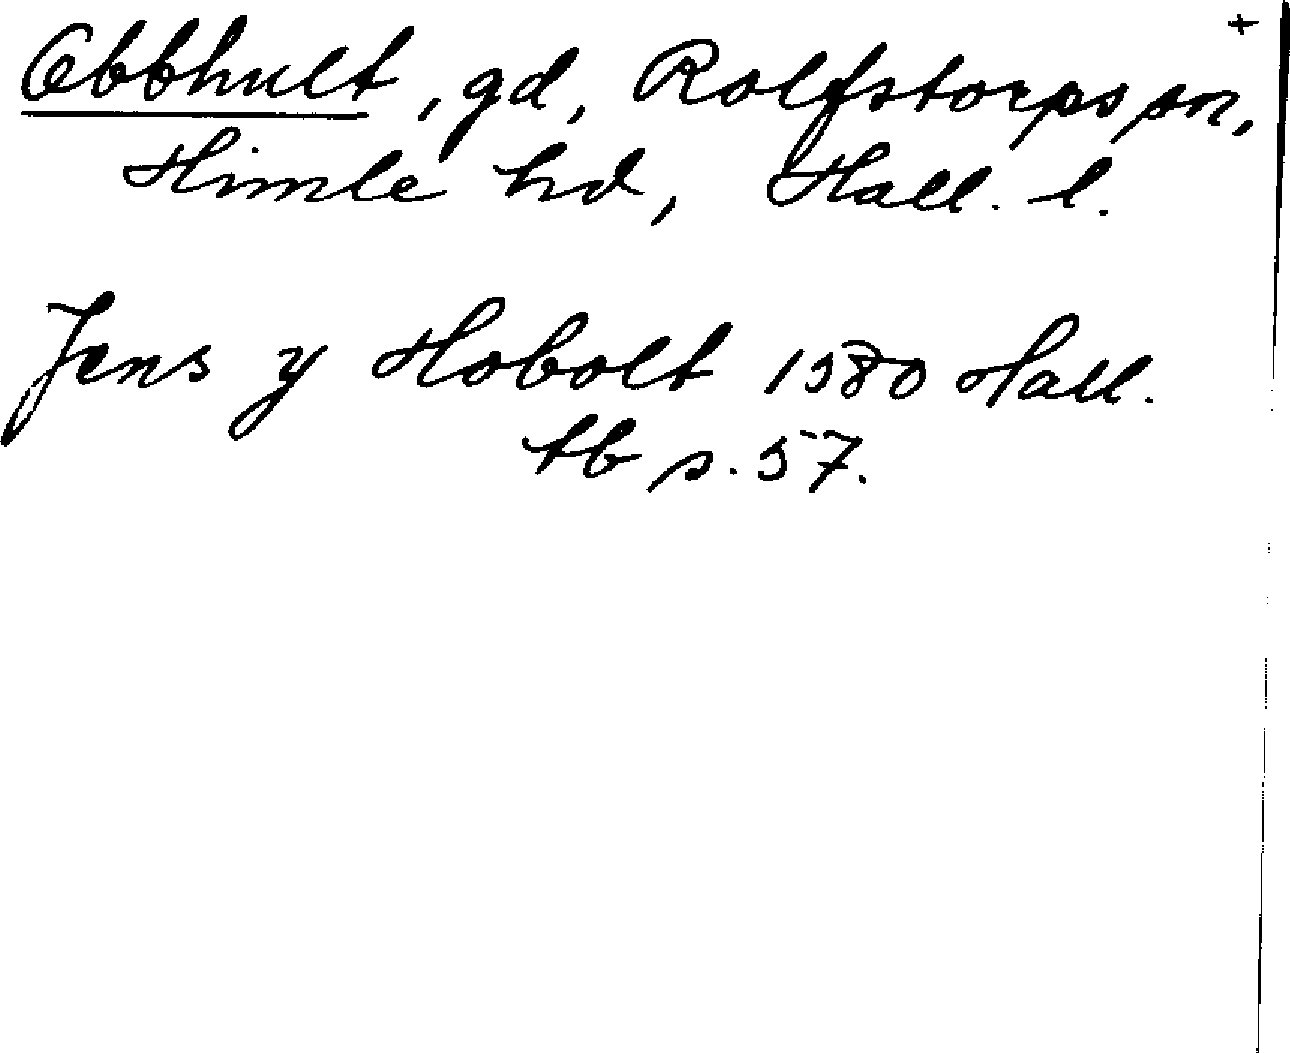 +
Obbhult, gd, Rolfstorps sn,
Himle hd, Hall. l.
Jens y Hobolt 1580 Hall.
tb s. 57.